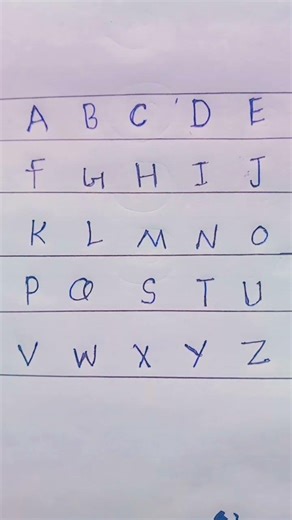 A B C D E
F G H I J
K L M N O
P Q S T U
V W X Y Z